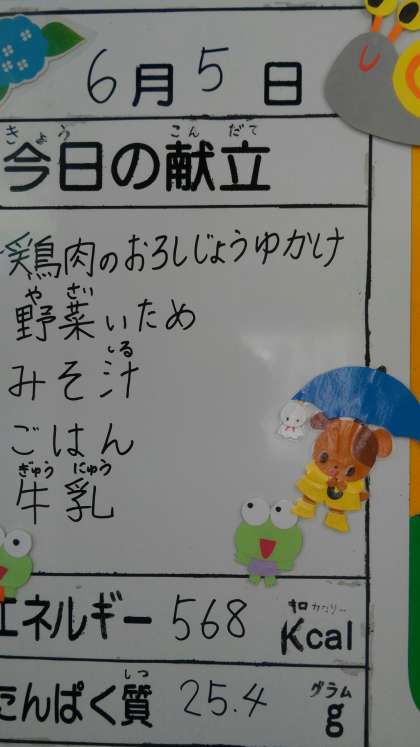 6月5日
きょう こんだて
今日の献立
鶏肉のおろしじょうゆかけ
やさい
野菜いため
しる
みそ汁
ごはん
ぎゅうにゅう
牛乳
キロカロリー
エネルギー 568 Kcal
しつ グラム
たんぱく質 25.4 g